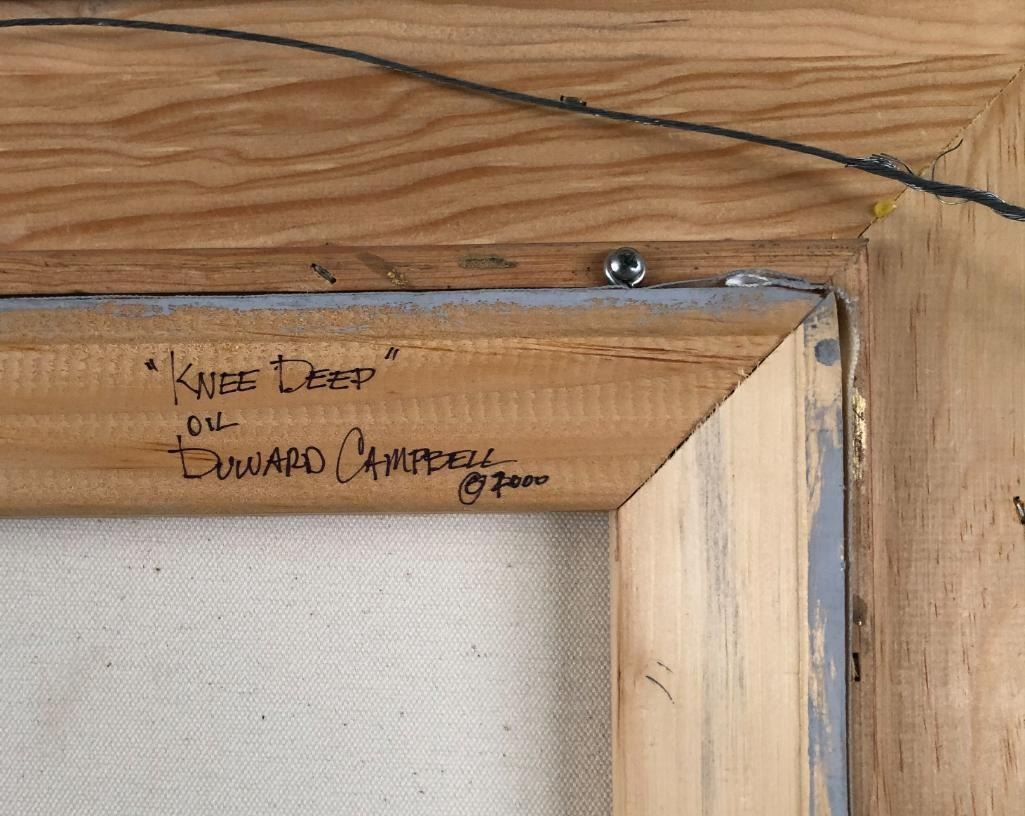 "KNEE DEEP"
OIL
DUWARD CAMPBELL
© 2000